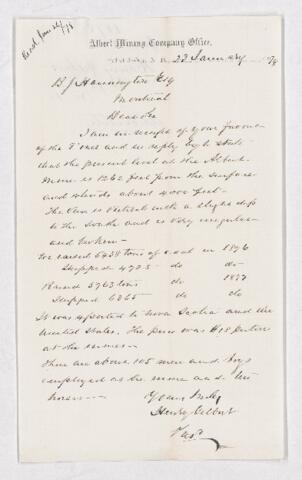 Albert Mining Company Office,
22 January
B J Harrington Esq
Montreal
Dear Sir
I am in receipt of your favour
of the inst and in reply beg to state
that the present level at the Albert
Mine is 1262 feet from the surface
and extends about 4000 feet
The Vein is Vertical with a slight dip
to the South and is very irregular
and broken—
We raised 6038 tons of coal in 1876
Shipped do do
Raised 5763 tons 1877
Shipped 6265 do do
It was exported to Nova Scotia and the
United States. The price was $18 per ton
at the mines—
There are about 105 men and boys
employed at the mine and two
horses—
Yours truly
Henry Calhoun